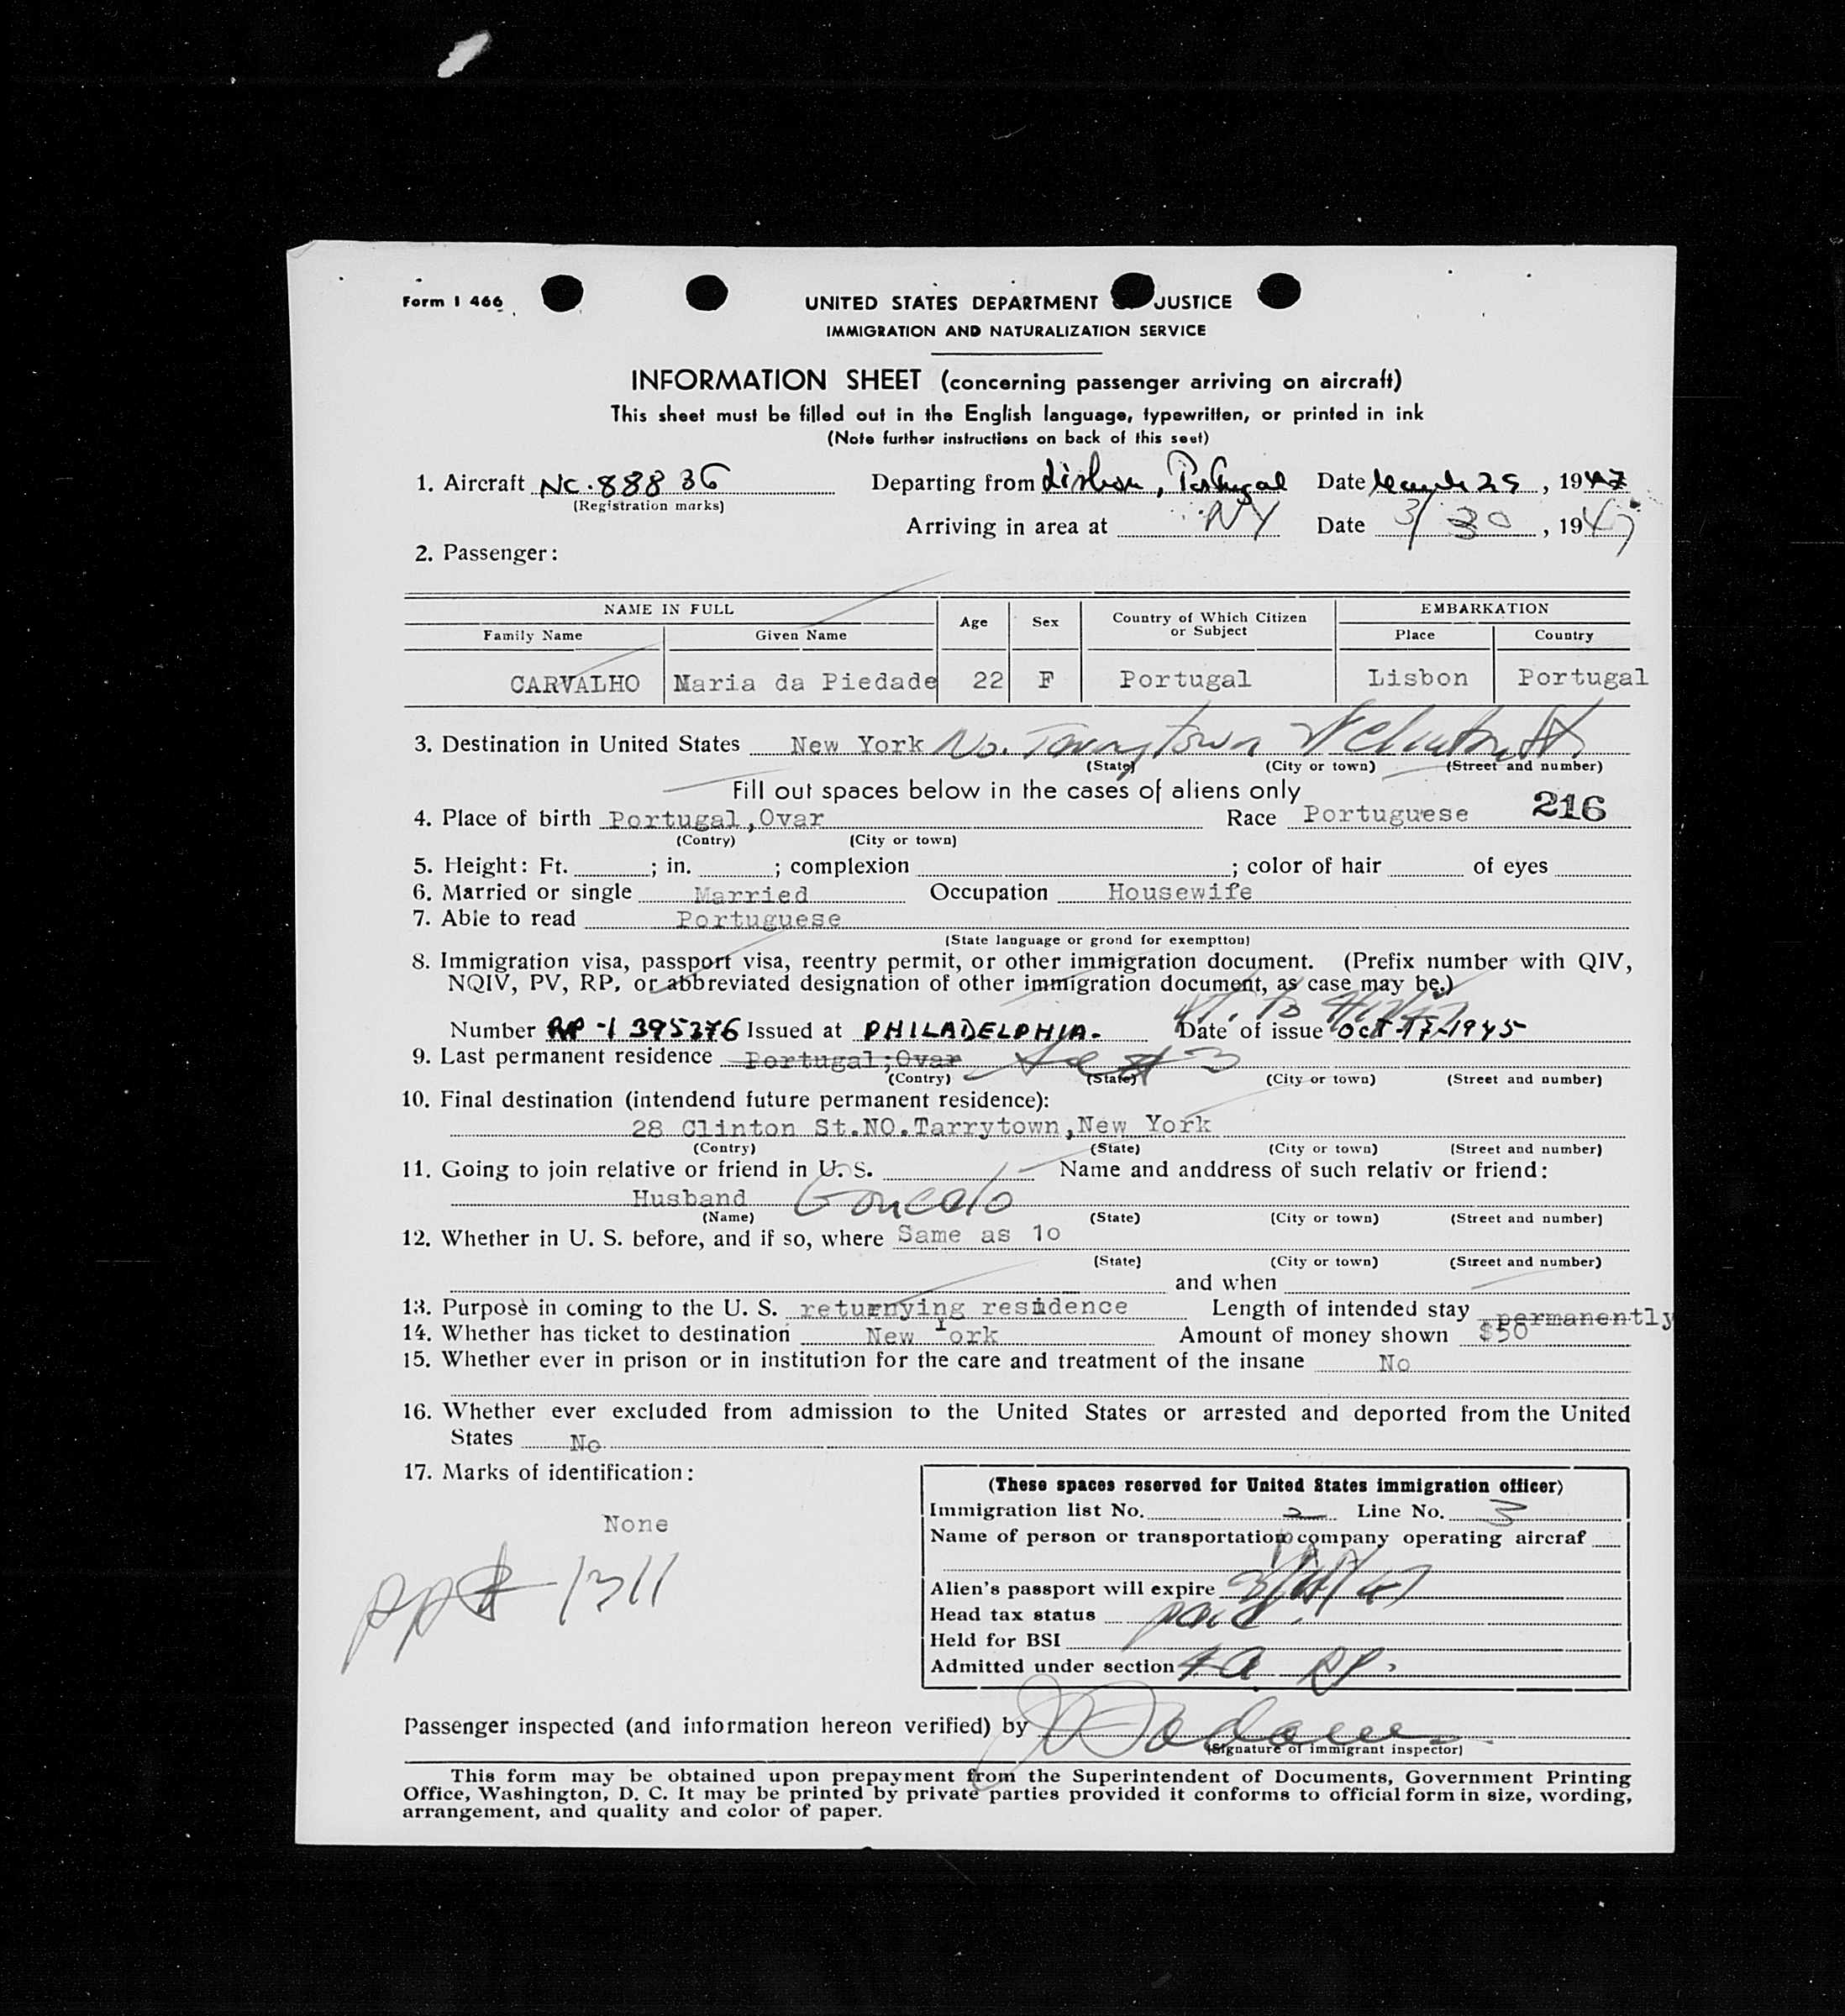 Form I 466
UNITED STATES DEPARTMENT JUSTICE
IMMIGRATION AND NATURALIZATION SERVICE
INFORMATION SHEET (concerning passenger arriving on aircraft)
This sheet must be filled out in the English language, typewritten, or printed in ink
(Note further instructions on back of this seet)
1. Aircraft NC.88836 Departing from Lisbon, Portugal Date March 29, 1947
(Registration marks)
Arriving in area at NY Date 3/30, 1947
2. Passenger:
NAME IN FULL Age Sex Country of Which Citizen or Subject EMBARKATION
Family Name Given Name Place Country
CARVALHO Maria da Piedade 22 F Portugal Lisbon Portugal
3. Destination in United States New York No. Tarrytown Clinton St.
(State) (City or town) (Street and number)
Fill out spaces below in the cases of aliens only
4. Place of birth Portugal,Ovar Race Portuguese 216
(Contry) (City or town)
5. Height: Ft. ; in. ; complexion ; color of hair of eyes
6. Married or single Married Occupation Housewife
7. Able to read Portuguese
(State language or grond for exemptton)
8. Immigration visa, passport visa, reentry permit, or other immigration document. (Prefix number with QIV,
NQIV, PV, RP, or abbreviated designation of other immigration document, as case may be.)
Number RP-1395376 Issued at PHILADELPHIA- Date of issue Oct-17-1945
9. Last permanent residence Portugal;Ovar 3
(Contry) (State) (City or town) (Street and number)
10. Final destination (intendend future permanent residence):
28 Clinton St.NO.Tarrytown,New York
(Contry) (State) (City or town) (Street and number)
11. Going to join relative or friend in U. S. Name and anddress of such relativ or friend:
Husband Goncalo
(Name) (State) (City or town) (Street and number)
12. Whether in U. S. before, and if so, where Same as 10
(State) (City or town) (Street and number)
and when
13. Purpose in coming to the U. S. returnying residence Length of intended stay permanently
14. Whether has ticket to destination New York Amount of money shown $50
15. Whether ever in prison or in institution for the care and treatment of the insane No
16. Whether ever excluded from admission to the United States or arrested and deported from the United
States No
17. Marks of identification:
None
pp# 1311
(These spaces reserved for United States immigration officer)
Immigration list No. 2 Line No. 3
Name of person or transportation company operating aircraf
Alien's passport will expire
Head tax status paid
Held for BSI
Admitted under section 4a RP.
Passenger inspected (and information hereon verified) by
(Signature of immigrant inspector)
This form may be obtained upon prepayment from the Superintendent of Documents, Government Printing
Office, Washington, D. C. It may be printed by private parties provided it conforms to official form in size, wording,
arrangement, and quality and color of paper.